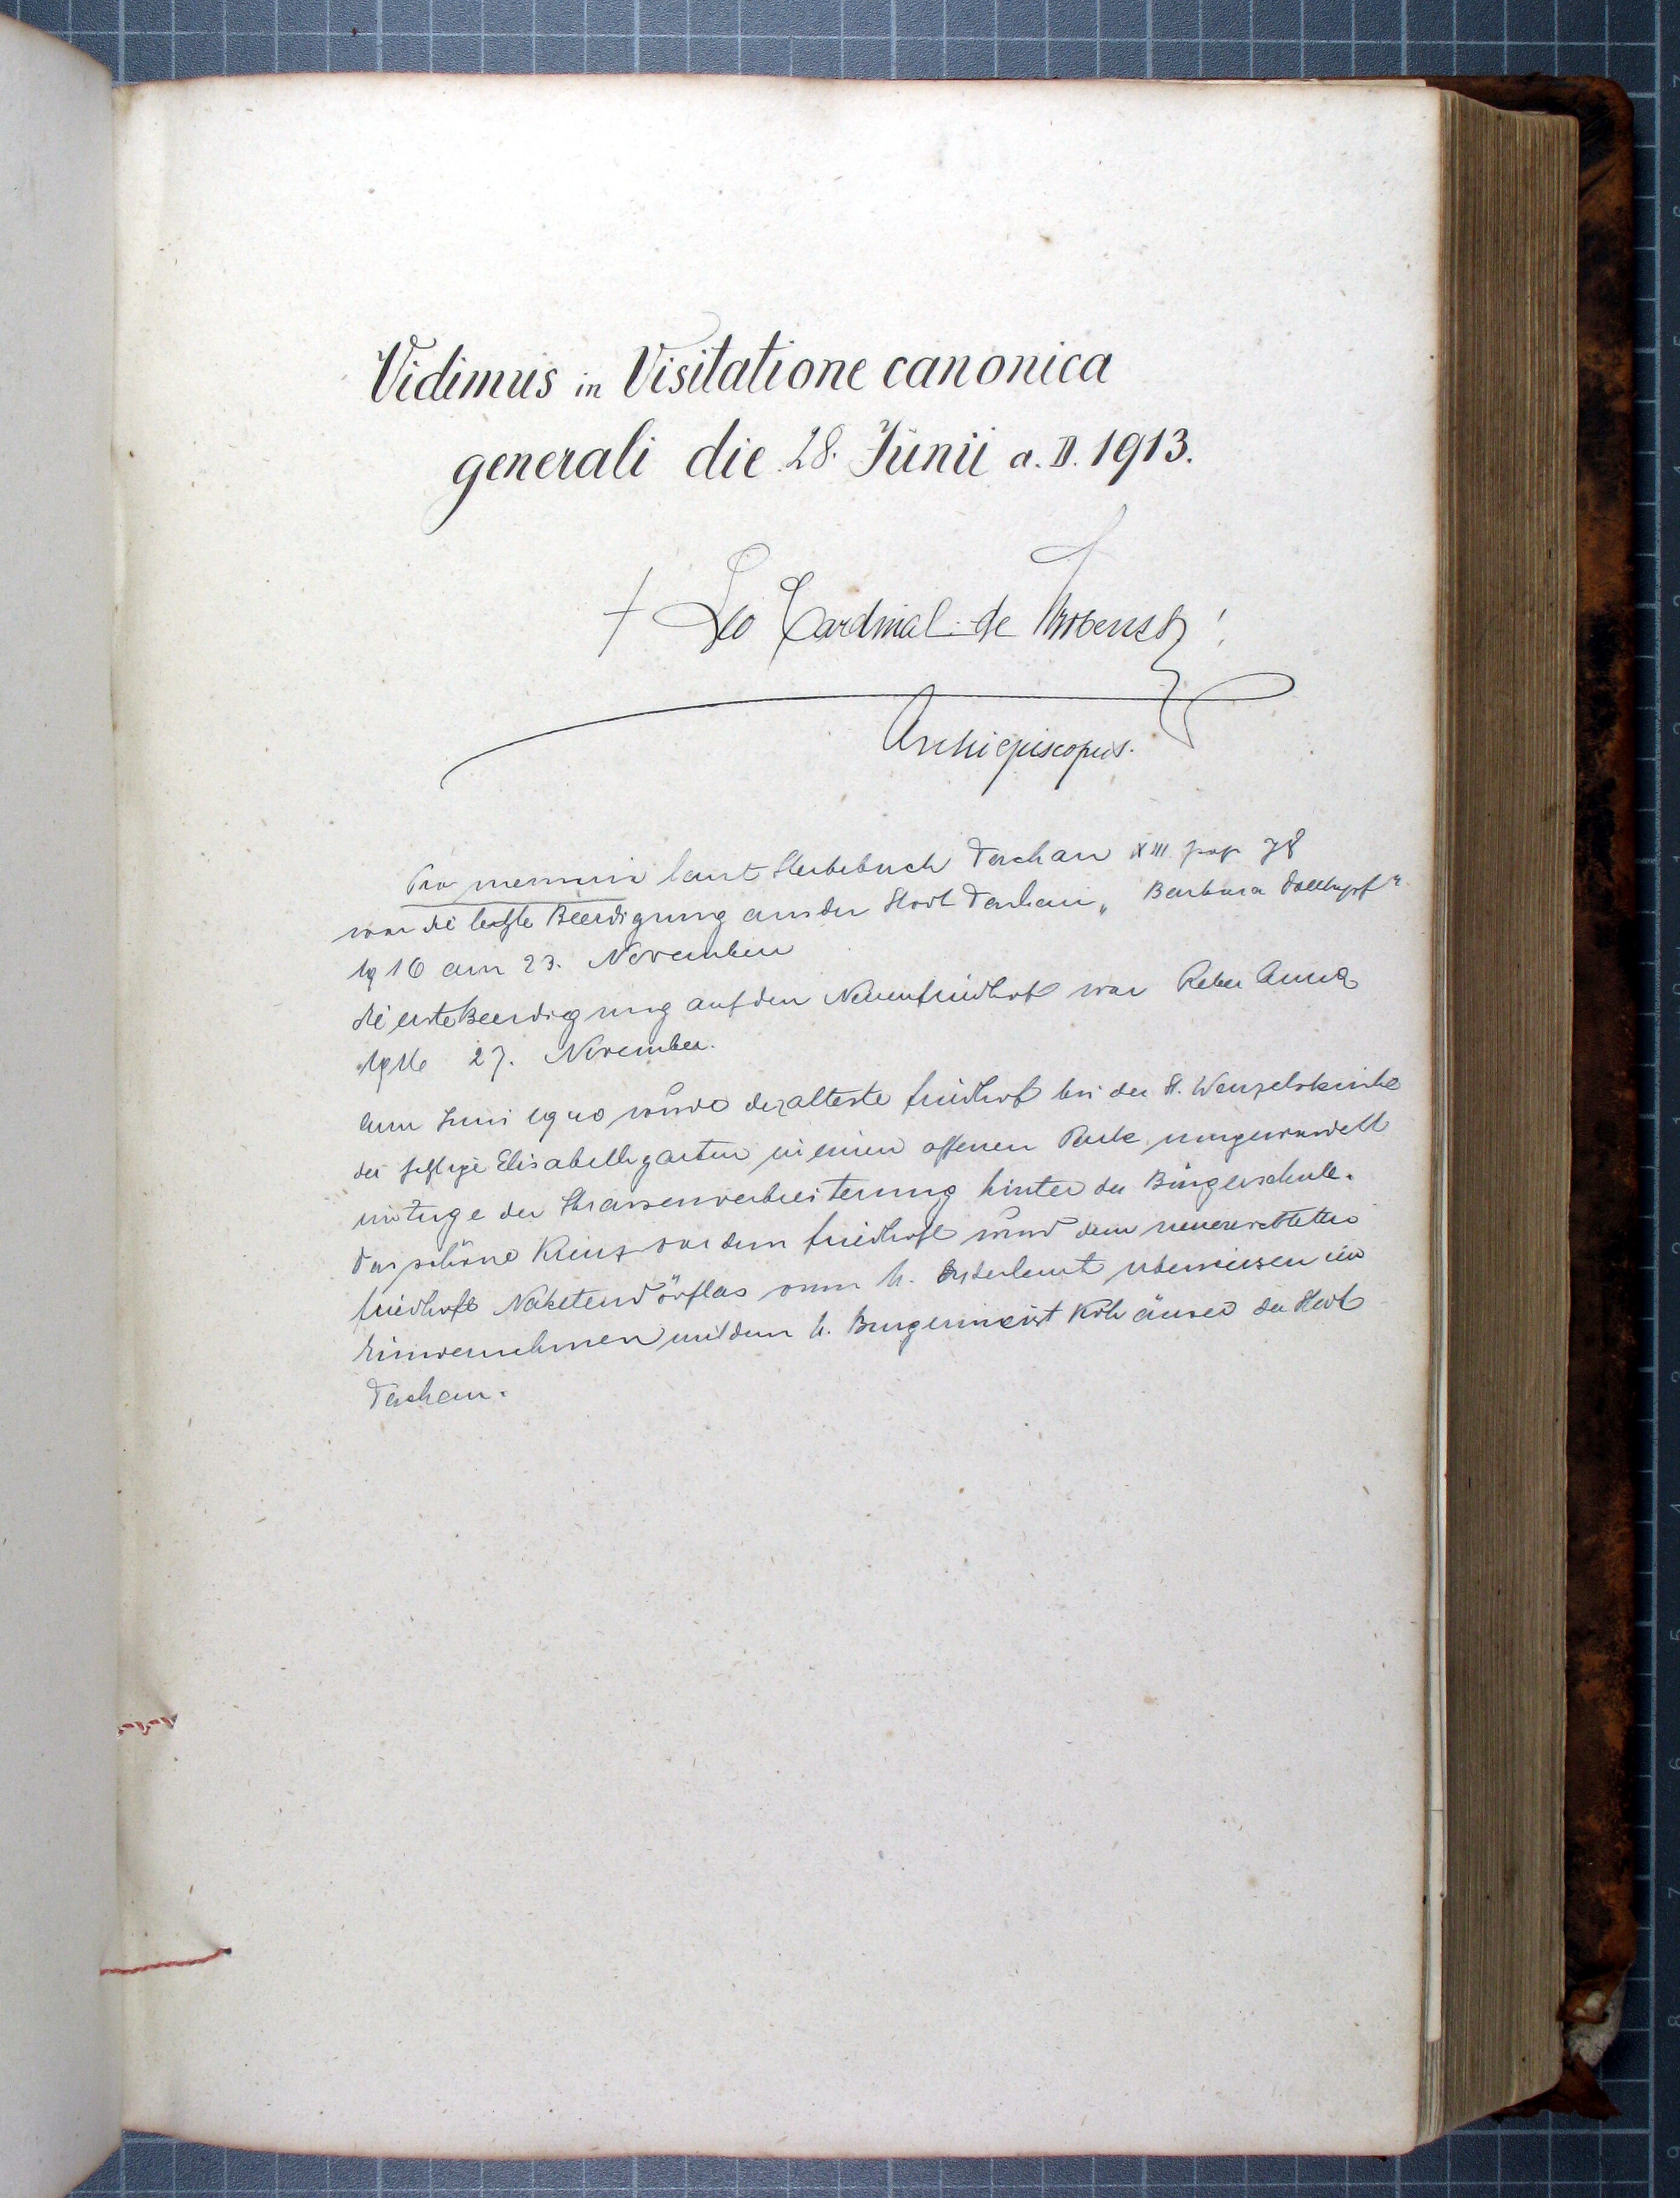 Vidimus in Visitatione canonica
generali die 28. Junii a. D. 1913.
† Leo Cardinal de Skrbensky
Archiepiscopus.
Pro memoria laut Sterbebuch Tachau XIII pag 78
war die letzte Beerdigung aus der Stadt Tachau „Barbara Dollhopf"
1916 am 23. November
die erste Beerdigung auf den Neuenfriedhof war Reber Anna
1916 27. November.
Am Juni 1940 wurde der alteste Friedhof bei der St. Wenzelskirche
der jetzige Elisabethgarten in einen offenen Park umgewandelt
im Zuge der Strassenverbreiterung hinter der Bürgerschule.
Das schöne Kreuz vor dem Friedhofe wurd dem neuerrichteten
Friedhofe Naketendörflas vom h. überwiesen im
Einvernehmen mit dem h. Burgermeist der Stadt
Tachau.